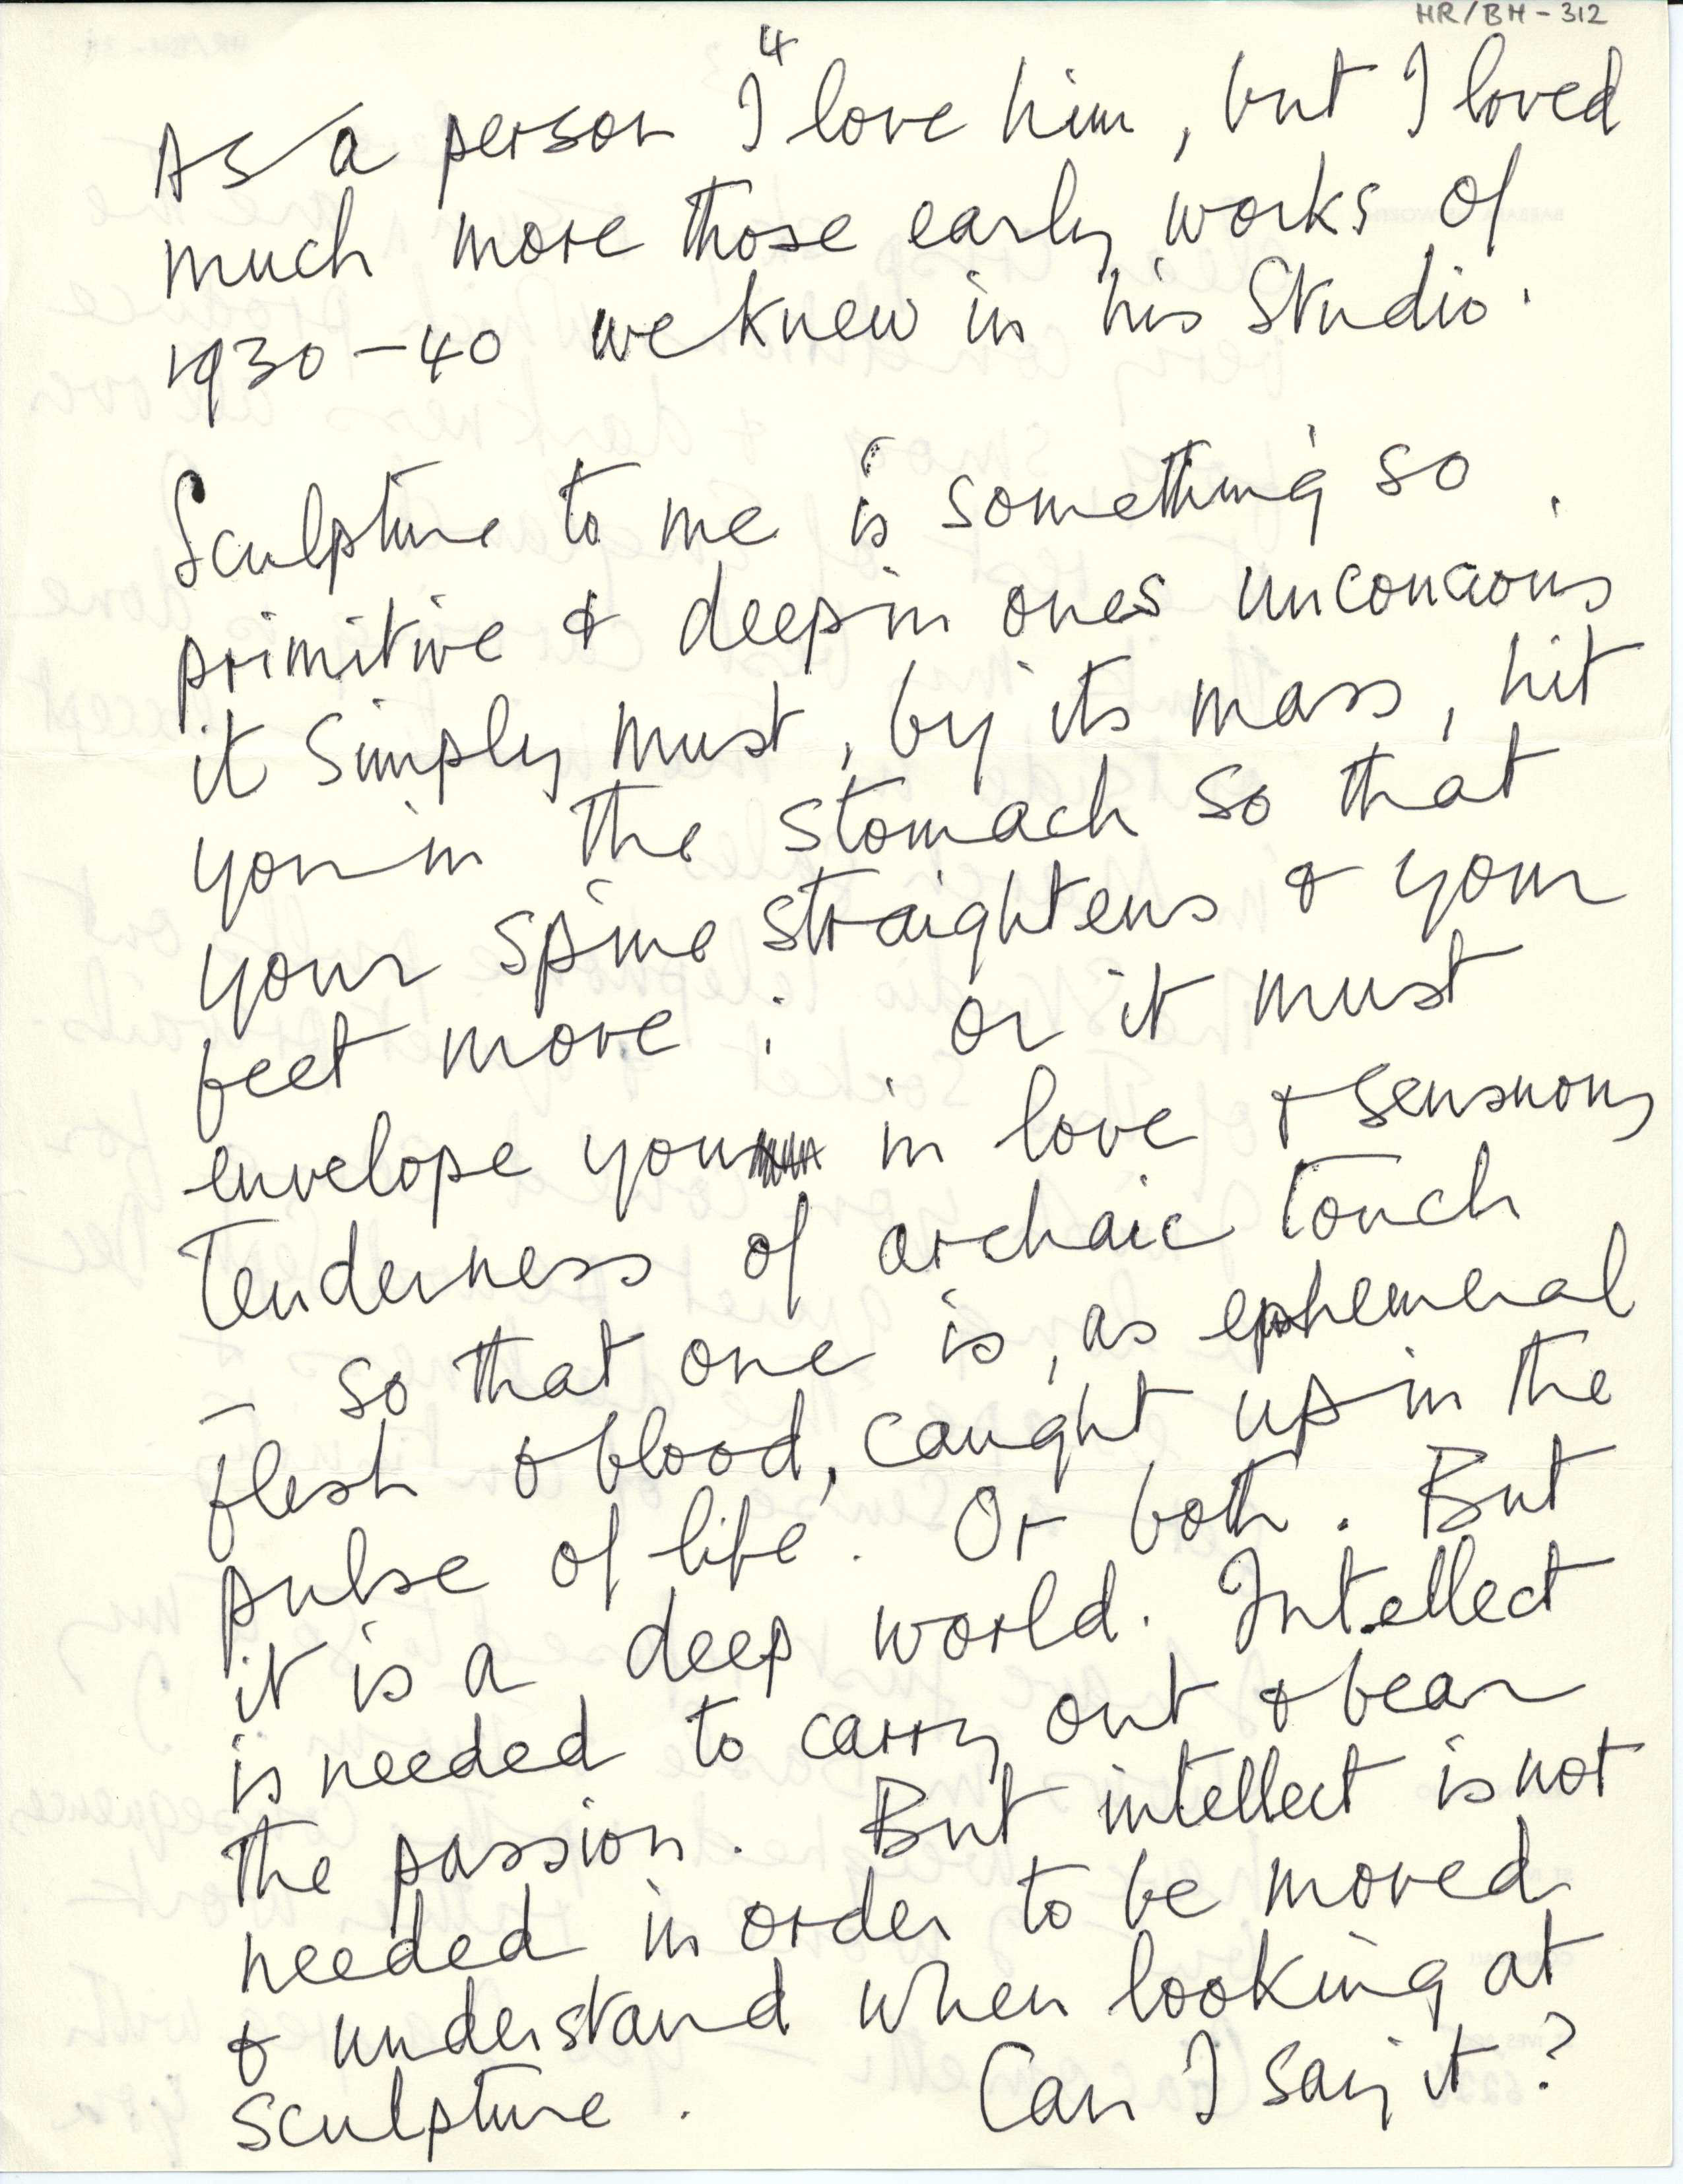 HR/BH-312
4
As a person I love him, but I loved
much more those early works of
1930-40 we knew in his Studio.
Sculpture to me is something so
primitive & deep in ones unconcious
it simply must, by its mass, hit
you in the stomach so that
your spine straightens & your
feet move; or it must
envelope you in love & sensuous
tenderness of archaic touch
– so that one is, as ephemeral
flesh & blood, caught up in the
pulse of life. Or both. But
it is a deep world. Intellect
is needed to carry out & bear
the passion. But intellect is not
needed in order to be moved
& understand when looking at
sculpture. Can I say it?